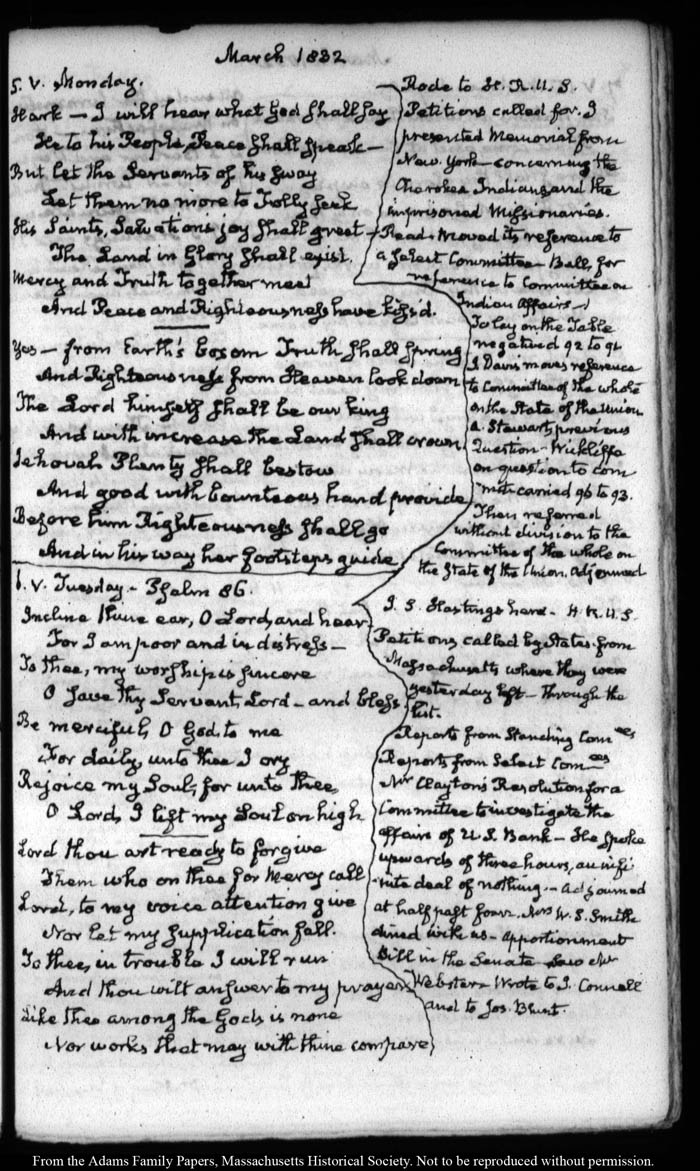 March 1832
5. V. Monday.
Hark — I will hear what God shall say
He to his People, Peace shall speak —
But let the Servants of his sway
Let them no more to Folly seek
His Saints, Salvation's joy shall greet
The Land in Glory shall exist.
Mercy and Truth together meet
And Peace and Righteousness have kiss'd.
Yes — from Earth's bosom Truth shall spring
And Righteousness from Heaven look down
The Lord himself shall be our king
And with increase the Land shall crown
Jehovah Plenty shall bestow
And good with bounteous hand provide
Before him Righteousness shall go
And in his way her footsteps guide
Rode to H. R. U. S.
Petitions called for. I
presented Memorial from
New York — concerning the
Cherokee Indians, and the
imprisoned Missionaries.
Read. Moved its reference to
a Select Committee — Bell, for
reference to Committee on
Indian Affairs —
To lay on the Table
negatived 92 to 91
J Davis moves reference
to Committee of the whole
on the State of the Union
A. Stewart, previous
Question — Wickliffe
on question to com
mit carried 96 to 93.
Then referred
without division to the
Committee of the whole on
the State of the Union. Adjourned
6. V. Tuesday — Psalm 86.
Incline thine ear, O Lord, and hear
For I am poor and in distress —
To thee, my worship is sincere
O save thy Servant, Lord — and bless
Be merciful, O God, to me
For daily unto thee I cry
Rejoice my Soul, for unto thee,
O Lord, I lift my Soul on high
Lord thou art ready to forgive
Them who on thee for Mercy call
Lord, to my voice attention give
Nor let my supplication fall.
To thee, in trouble I will run
And thou wilt answer to my prayer
Like thee among the Gods is none
Nor works that may with thine compare
J. S. Hastings here — H. R. U. S.
Petitions called by States from
Massachusetts where they were
yesterday left — through the
list.
Reports from Standing Comees
Reports from Select Comees
Mr Clayton's Resolution for a
Committee to investigate the
affairs of U. S. Bank — He spoke
upwards of three hours, an infi
nite deal of nothing — Adjourned
at half past four. Mrs W. S. Smith
dined with us — apportionment
Bill in the Senate — Saw Mr
Webster — Wrote to J. Connell
and to Jos. Blunt.
From the Adams Family Papers, Massachusetts Historical Society. Not to be reproduced without permission.